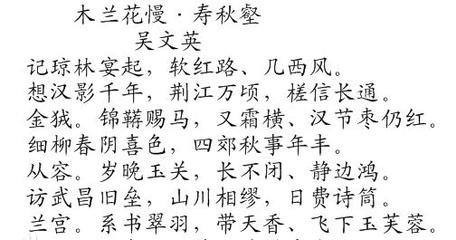 木兰花慢·寿秋壑
吴文英
记琼林宴起，软红路、几西风。
想汉影千年，荆江万顷，槎信长通。
金狨。锦鞯赐马，又霜横、汉节枣仍红。
细柳春阴喜色，四郊秋事年丰。
从容。岁晚玉关，长不闭、静边鸿。
访武昌旧垒，山川相缪，日费诗筒。
兰宫。系书翠羽，带天香、飞下玉芙蓉。